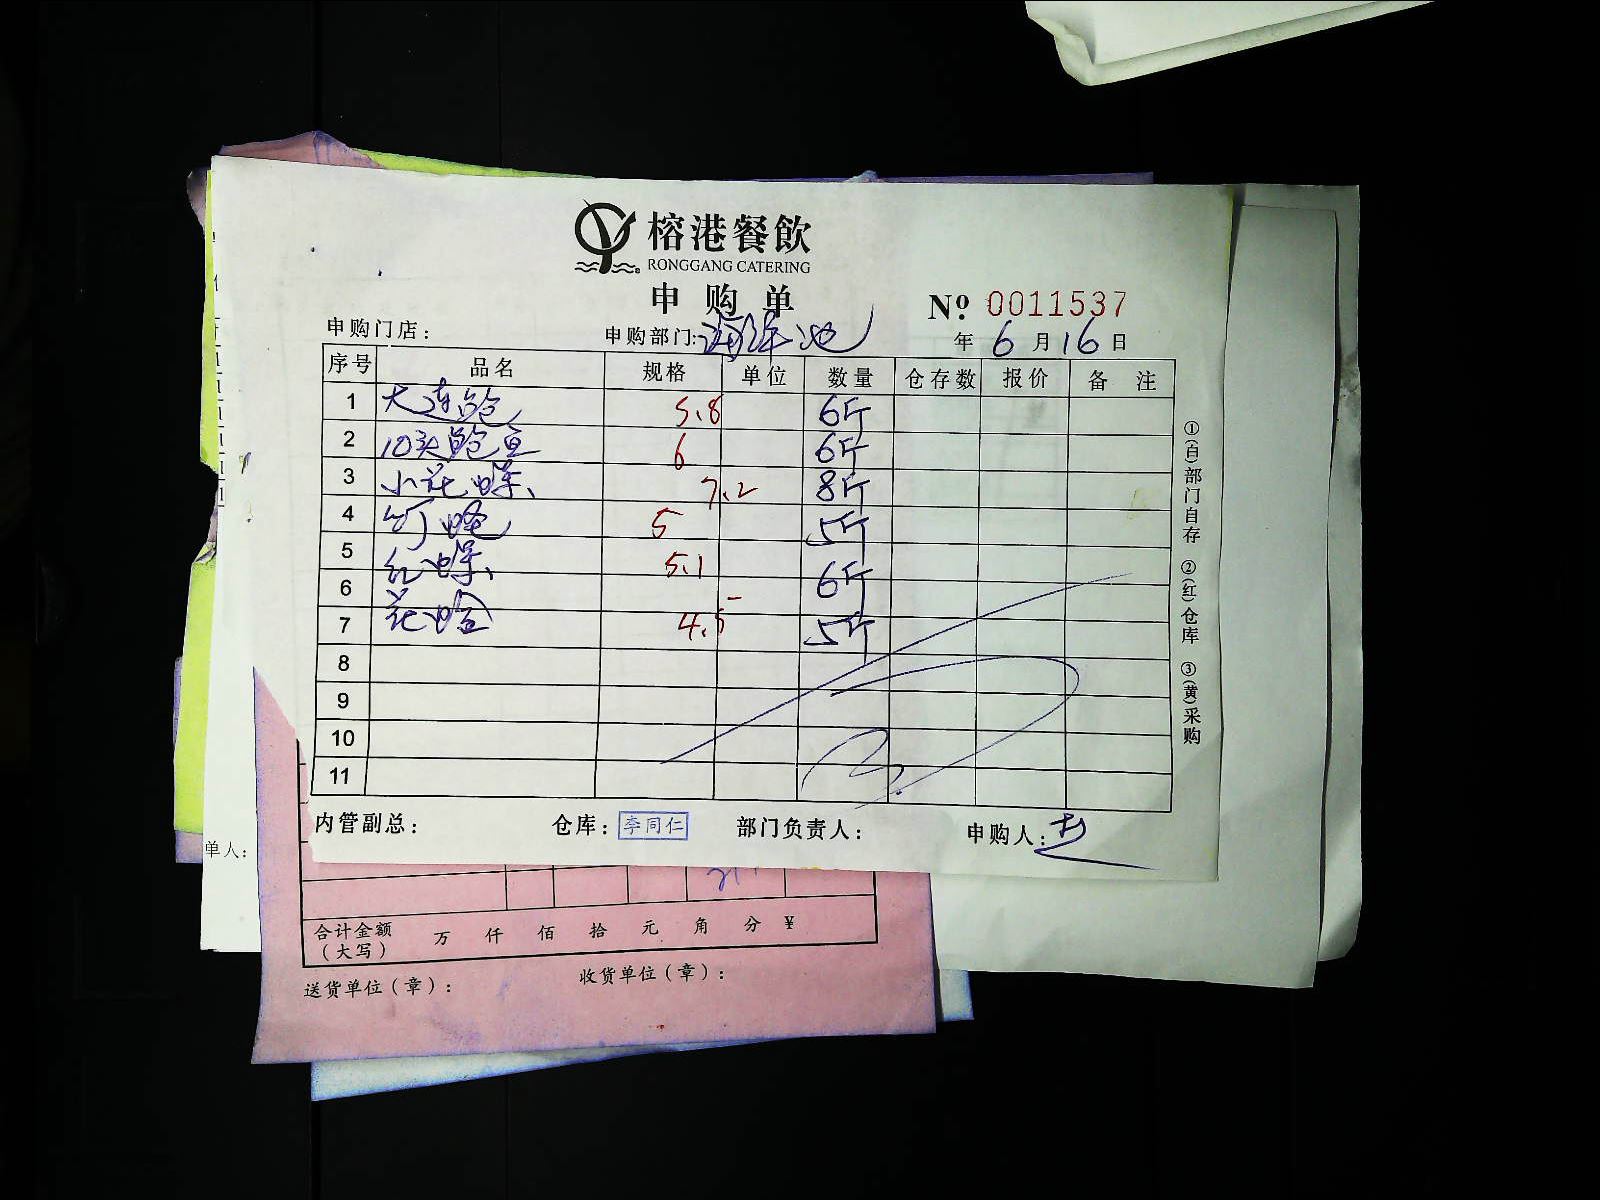 榕港餐飲
RONGGANG CATERING
申购单
№ 0011537
申购门店： 申购部门:海鲜池 年 6 月 16 日
序号 品名 规格 单位 数量 仓存数 报价 备 注
1 大连鲍 5.8 6斤
2 10头鲍鱼 6 6斤
3 小花螺 7.2 8斤
4 5 5斤
5 红螺 5.1 6斤
6
7 花蛤 4.5 5斤
8
9
10
11
内管副总： 仓库：李同仁 部门负责人： 申购人：
①(白)部门自存 ②(红)仓库 ③(黄)采购
单人：
合计金额
（大写） 万 仟 佰 拾 元 角 分 ¥
送货单位（章）： 收货单位（章）：